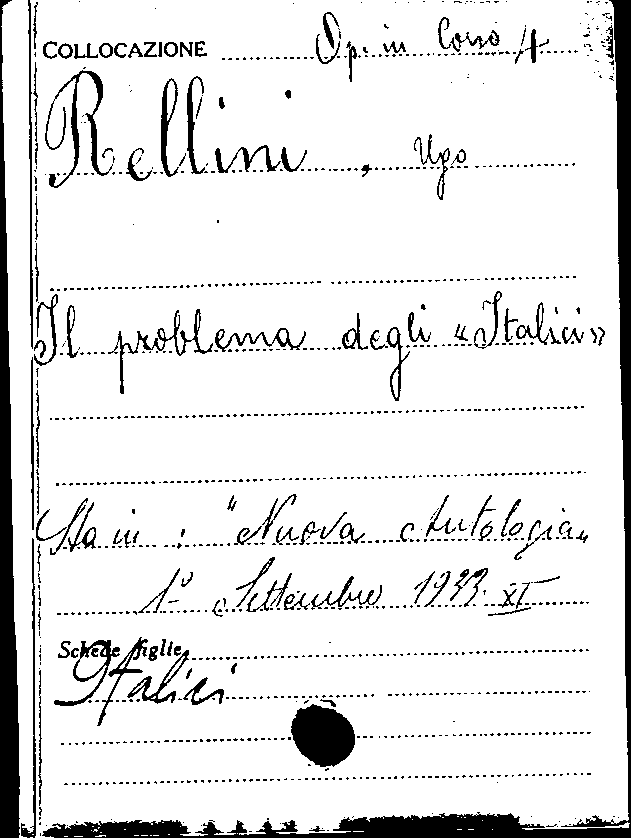 COLLOCAZIONE Op. in Corso 4
Rellini, Ugo
Il problema degli «Italici»
Sta in: "Nuova Antologia"
1º Settembre 1933. XI
Schede figlie
Italici